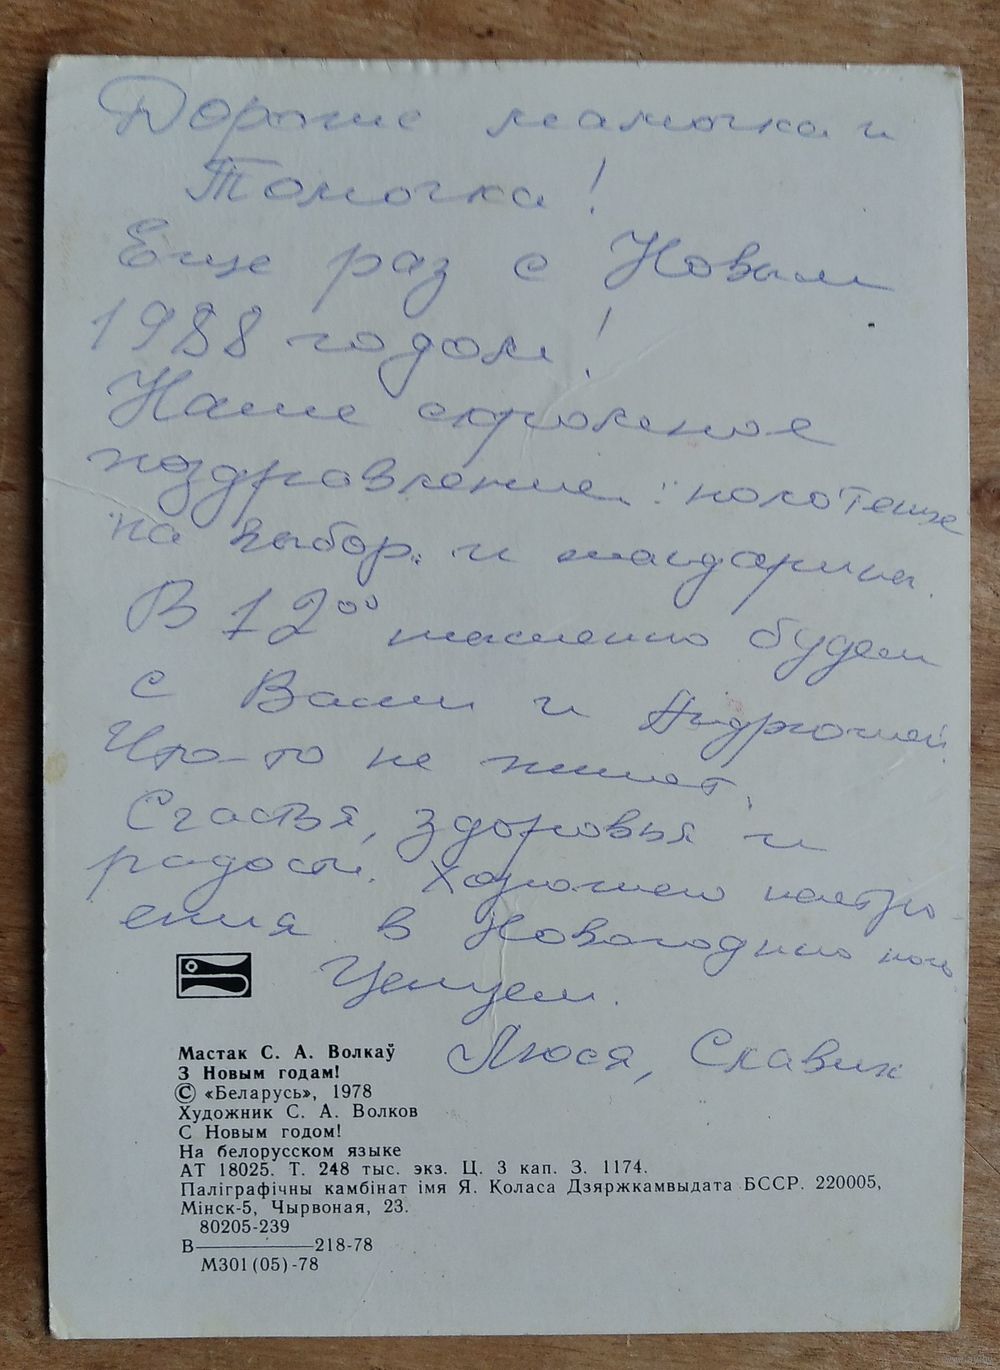 Дорогие мамочка и
Томочка!
Еще раз с Новым
1988 годом!
Наше скромное
поздравление: полотенце
на выбор. и мандарины.
В 12⁰⁰ мысленно будем
с Вами и Андрюшей.
Что-то не пишет.
Счастья, здоровья и
радости. Хорошего настро-
ения в Новогоднюю ночь
Целуем.
Люся, Славик
Мастак С. А. Волкаў
З Новым годам!
© «Беларусь», 1978
Художник С. А. Волков
С Новым годом!
На белорусском языке
АТ 18025. Т. 248 тыс. экз. Ц. 3 кап. З. 1174.
Паліграфічны камбінат імя Я. Коласа Дзяржкамвыдата БССР. 220005,
Мінск-5, Чырвоная, 23.
80205-239
В————218-78
М301(05)-78